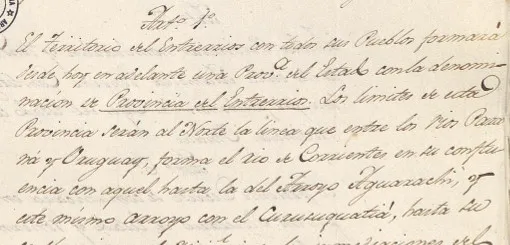 Arto. 1o.
El Territorio del Entrerrios con todos sus Pueblos formará
desde hoy en adelante una Prova. del Estado con la denomi-
nación de Provincia del Entrerrios. Los limites de esta
Provincia serán al Norte la linea que entre los rios Para-
ná y Uruguay, forma el rio de Corrientes en su conflu-
encia con aquel hasta la del Arroyo Aguarachi, y
este mismo arroyo con el Curuzuquatiá, hasta su